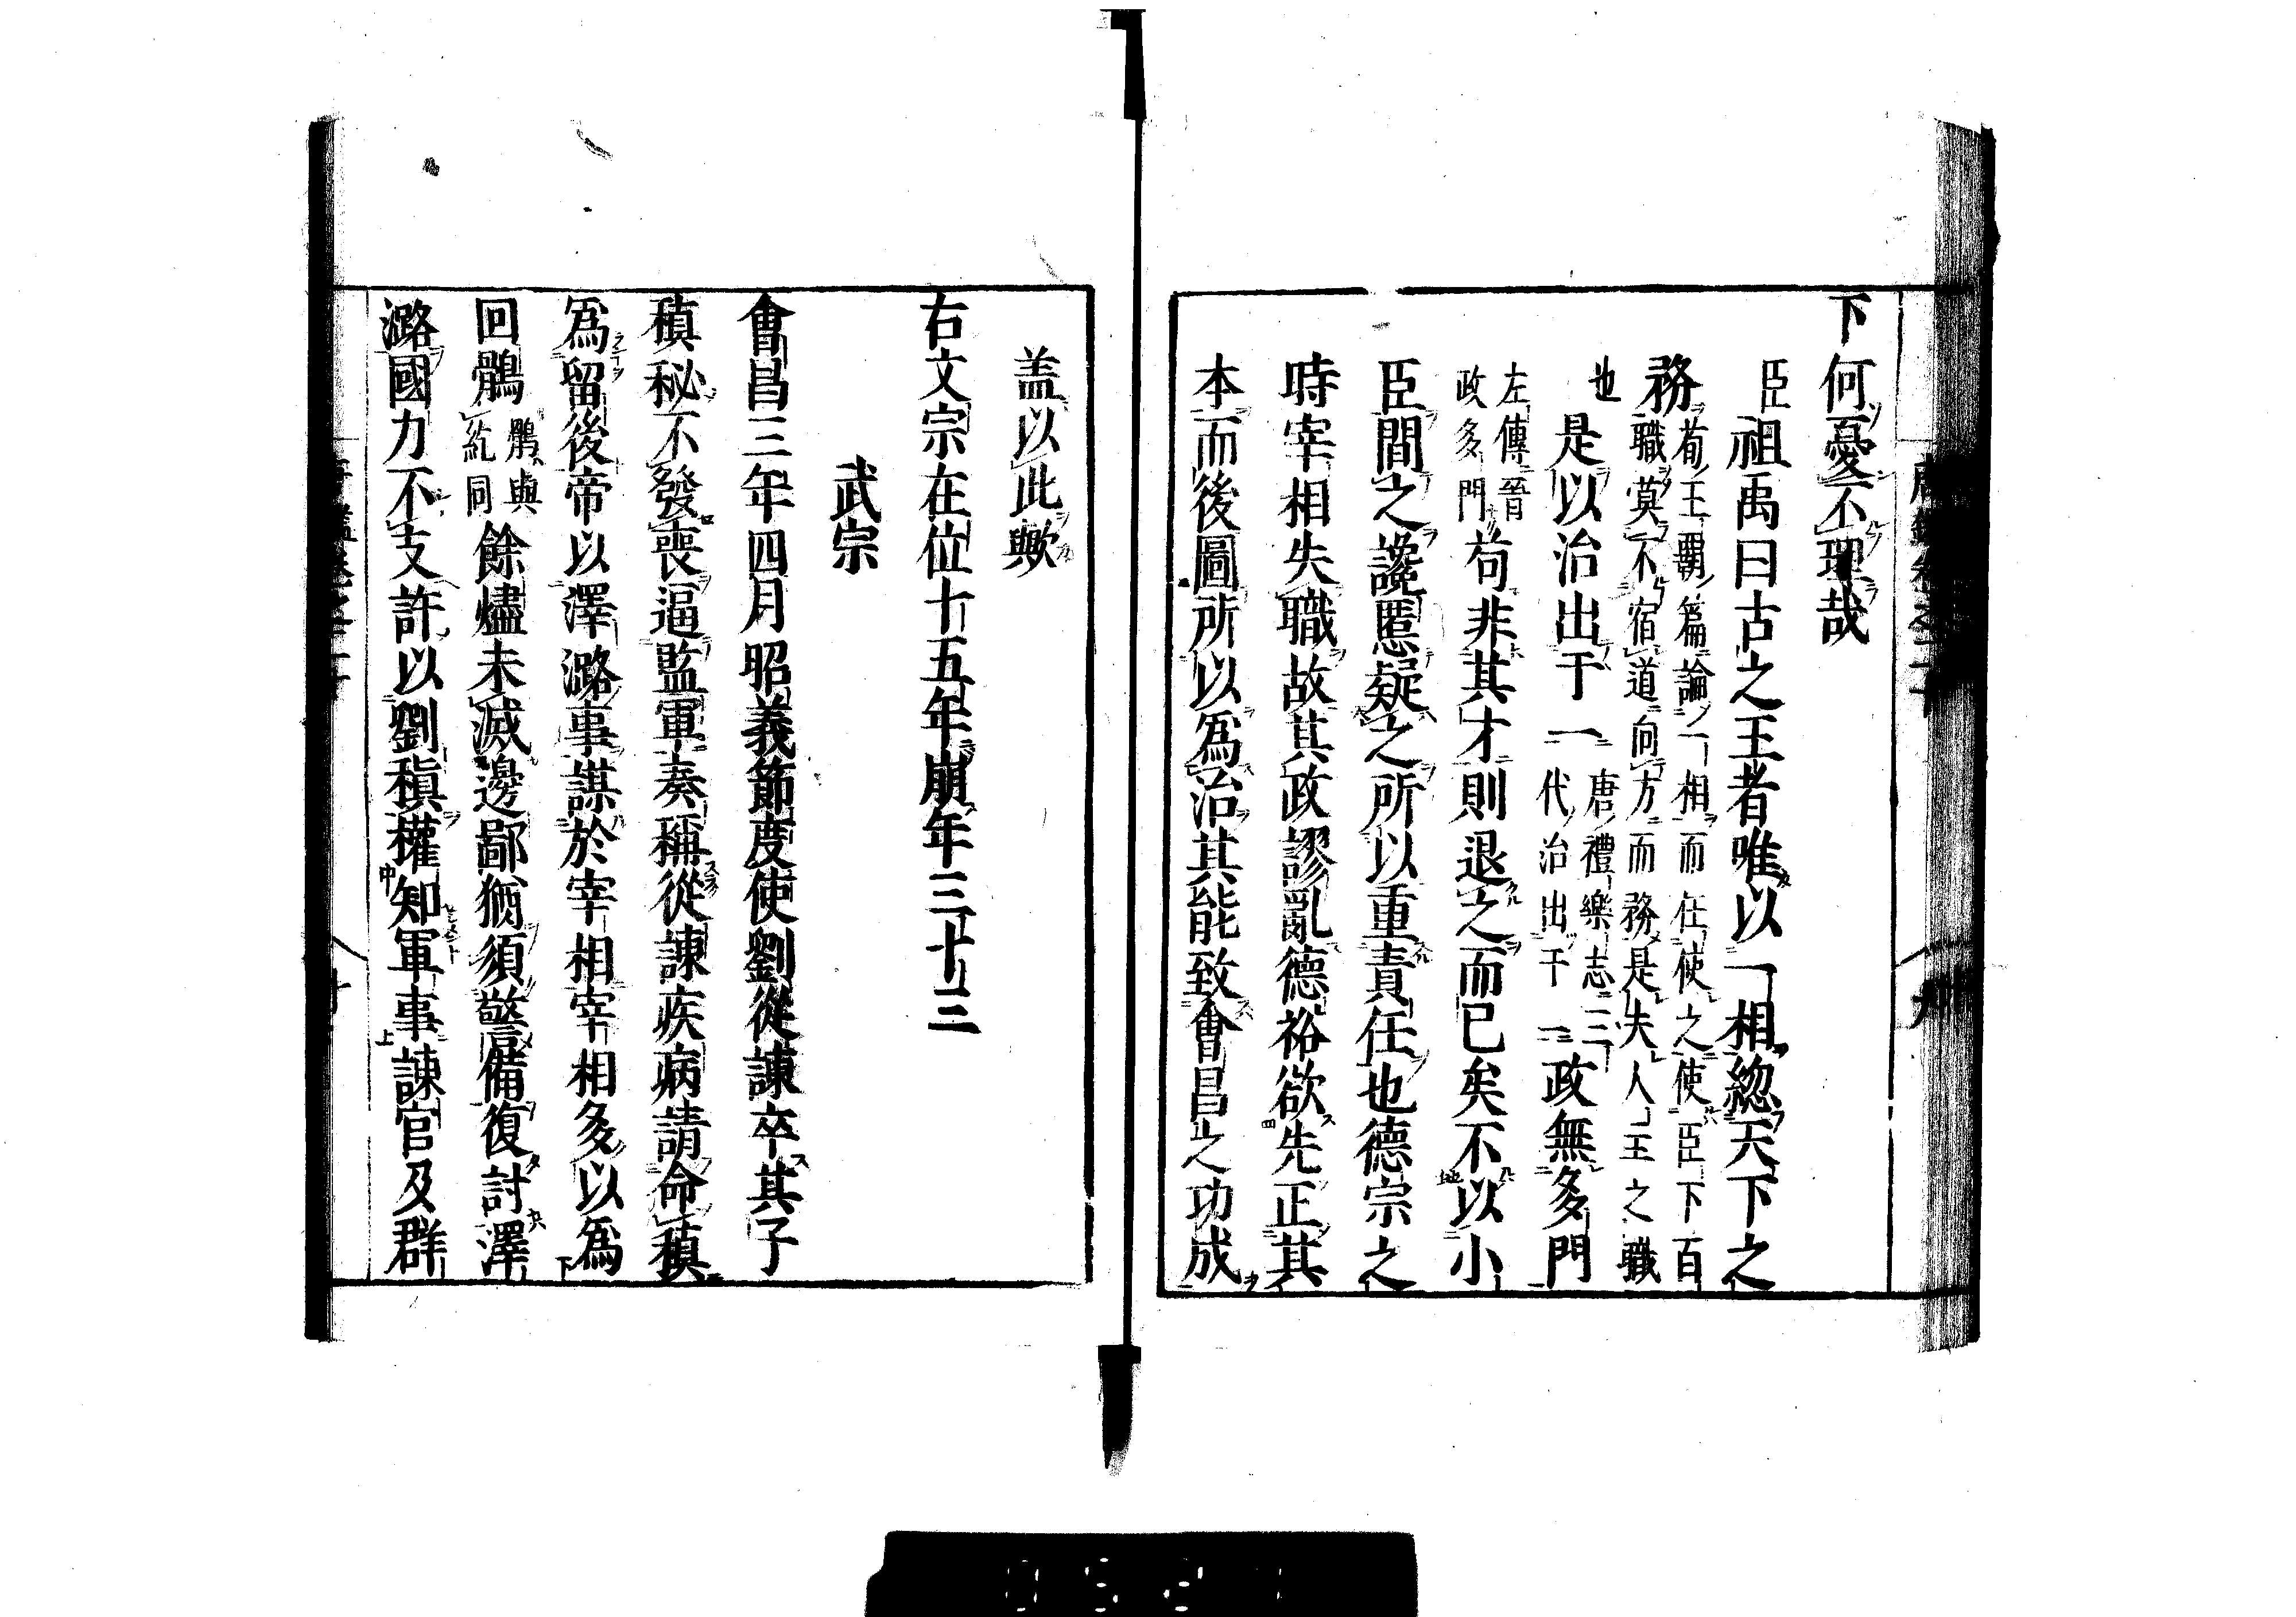 下何憂不理哉
臣祖禹曰古之王者唯以一相總天下之
務荀王霸篇論一相而任使之使臣下百
職莫不宿道向方而務是夫人主之職
也是以治出于一唐禮樂志三
代治出于一政無多門
左傳晉
政多門苟非其才則退之而已矣不以小
臣間之讒慝疑之所以重責任也德宗之
時宰相失職故其政謬亂德裕欲先正其
本而後圖所以爲治其能致會昌之功成
盖以此歟
右文宗在位十五年崩年三十三
武宗
會昌三年四月昭義節度使劉從諫卒其子
稹秘不發喪逼監軍奏稱從諫疾病請命稹
爲留後帝以澤潞事謀於宰相宰相多以爲
回鶻鶻與
紇同餘燼未滅邊鄙猶須警備復討澤
潞國力不支許以劉稹權知軍事諫官及群